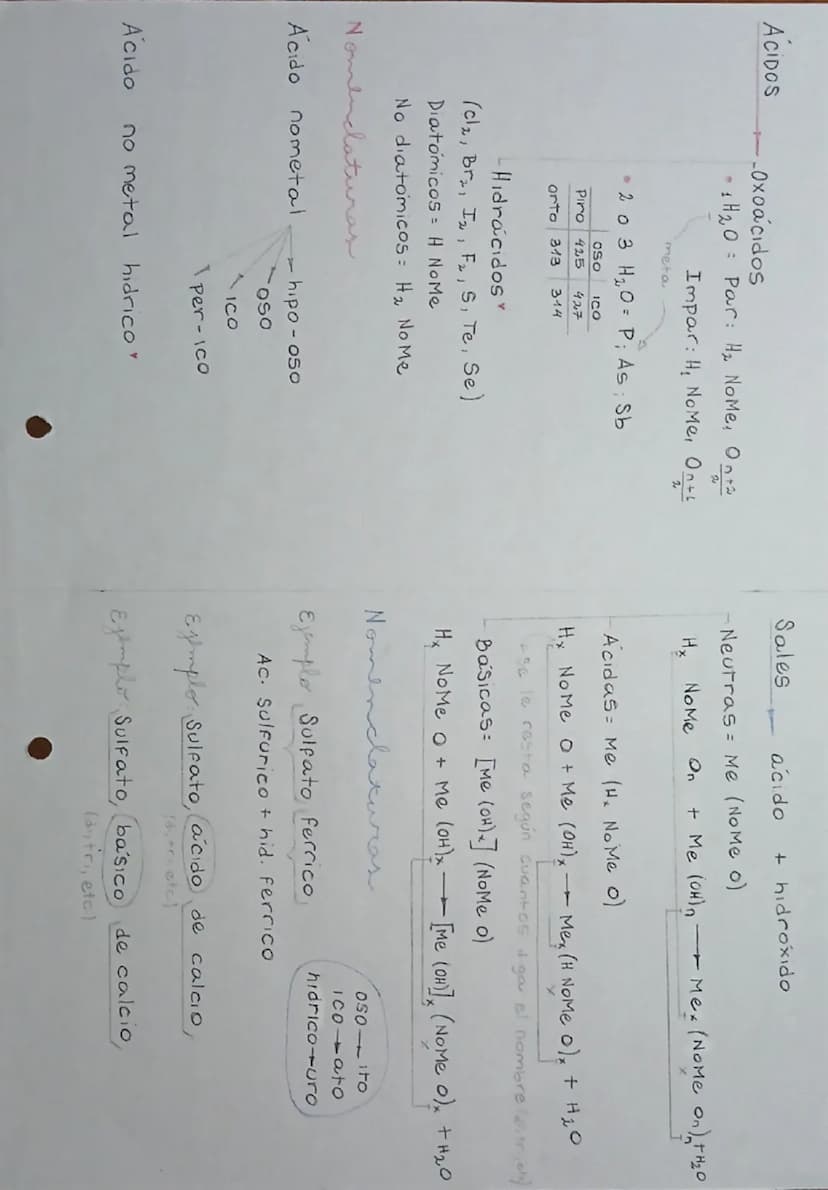 ÁCIDOS
- Oxoácidos
• 1 H2O = Par: H2 NoMe1 O n+2/2
Impar: H1 NoMe1 O n+1/2
meta
• 2 o 3 H2O = P; As; Sb
oso ico
Piro 425 427
orto 313 314
- Hidrácidos
(Cl2, Br2, I2, F2, S, Te, Se)
Diatómicos = H NoMe
No diatómicos = H2 NoMe
Nomenclaturas
Ácido nometal → hipo-oso
oso
ico
per-ico
Ácido no metal hídrico
Sales → ácido + hidróxido
- Neutras = Me (NoMe x O)
Hx NoMe On + Me (OH)n → Mex (NoMe On)n + H2O
- Ácidas = Me (Hx NoMe O)
Hx NoMe O + Me (OH)x → Mex (H NoMe O)x + H2O
se le resta según cuantos diga el nombre
- Básicas = [Me (OH)x] (NoMe O)
Hx NoMe O + Me (OH)x → [Me (OH)]x (NoMe O)x + H2O
Nomenclaturas
Ejemplo: Sulfato ferrico
Ac. Sulfurico + hid. ferrico
oso → ito
ico → ato
hídrico → uro
Ejemplo: Sulfato, ácido de calcio
(di, tri, etc)
Ejemplo: Sulfato, básico de calcio
(di, tri, etc)